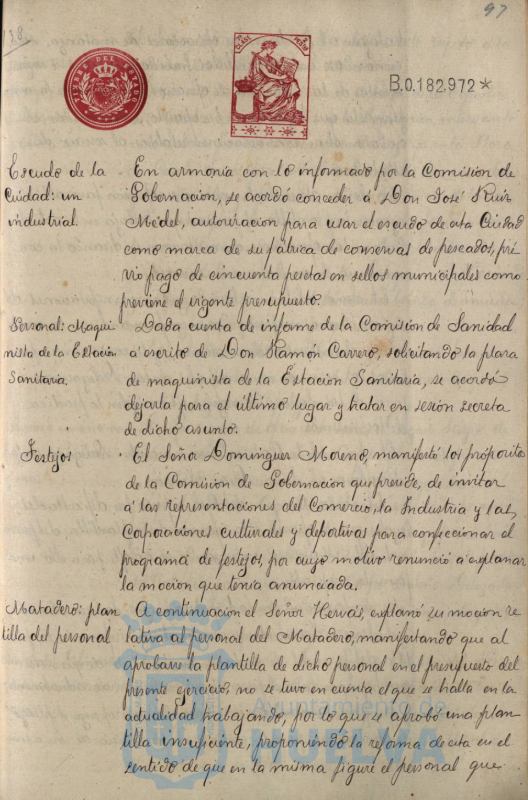 138
97
TIMBRE DEL ESTADO
B.0.182.972*
Escudo de la
Ciudad: un
industrial.
En armonía con lo informado por la Comisión de
Gobernación, se acordó conceder á Don José Ruiz
Medel, autorización para usar el escudo de esta Ciudad
como marca de su fábrica de conservas de pescados, pré
vio pago de cincuenta pesetas en sellos municipales como
previene el vigente presupuesto.
Personal: Maqui
nista de la Estación
Sanitaria.
Dada cuenta de informe de la Comisión de Sanidad
á escrito de Don Ramón Carrero, solicitando la plaza
de maquinista de la Estación Sanitaria, se acordó
dejarla para el último lugar y tratar en sesión secreta
de dicho asunto.
Festejos
El Señor Domínguez Moreno, manifestó los propósitos
de la Comisión de Gobernación que preside, de invitar
á las representaciones del Comercio, la Industria y las
Corporaciones culturales y deportivas para confeccionar el
programa de festejos, por cuyo motivo renunció á explanar
la moción que tenía anunciada.
Matadero: plan
tilla del personal
A continuación el Señor Hervás, explanó su moción re
lativa al personal del Matadero, manifestando que al
aprobarse la plantilla de dicho personal en el presupuesto del
presente ejercicio, no se tuvo en cuenta el que se halla en la
actualidad trabajando, por lo que se aprobó una plan
tilla insuficiente, proponiendo la reforma de esta en el
sentido de que en la misma figure el personal que
Ayuntamiento de
HUELVA